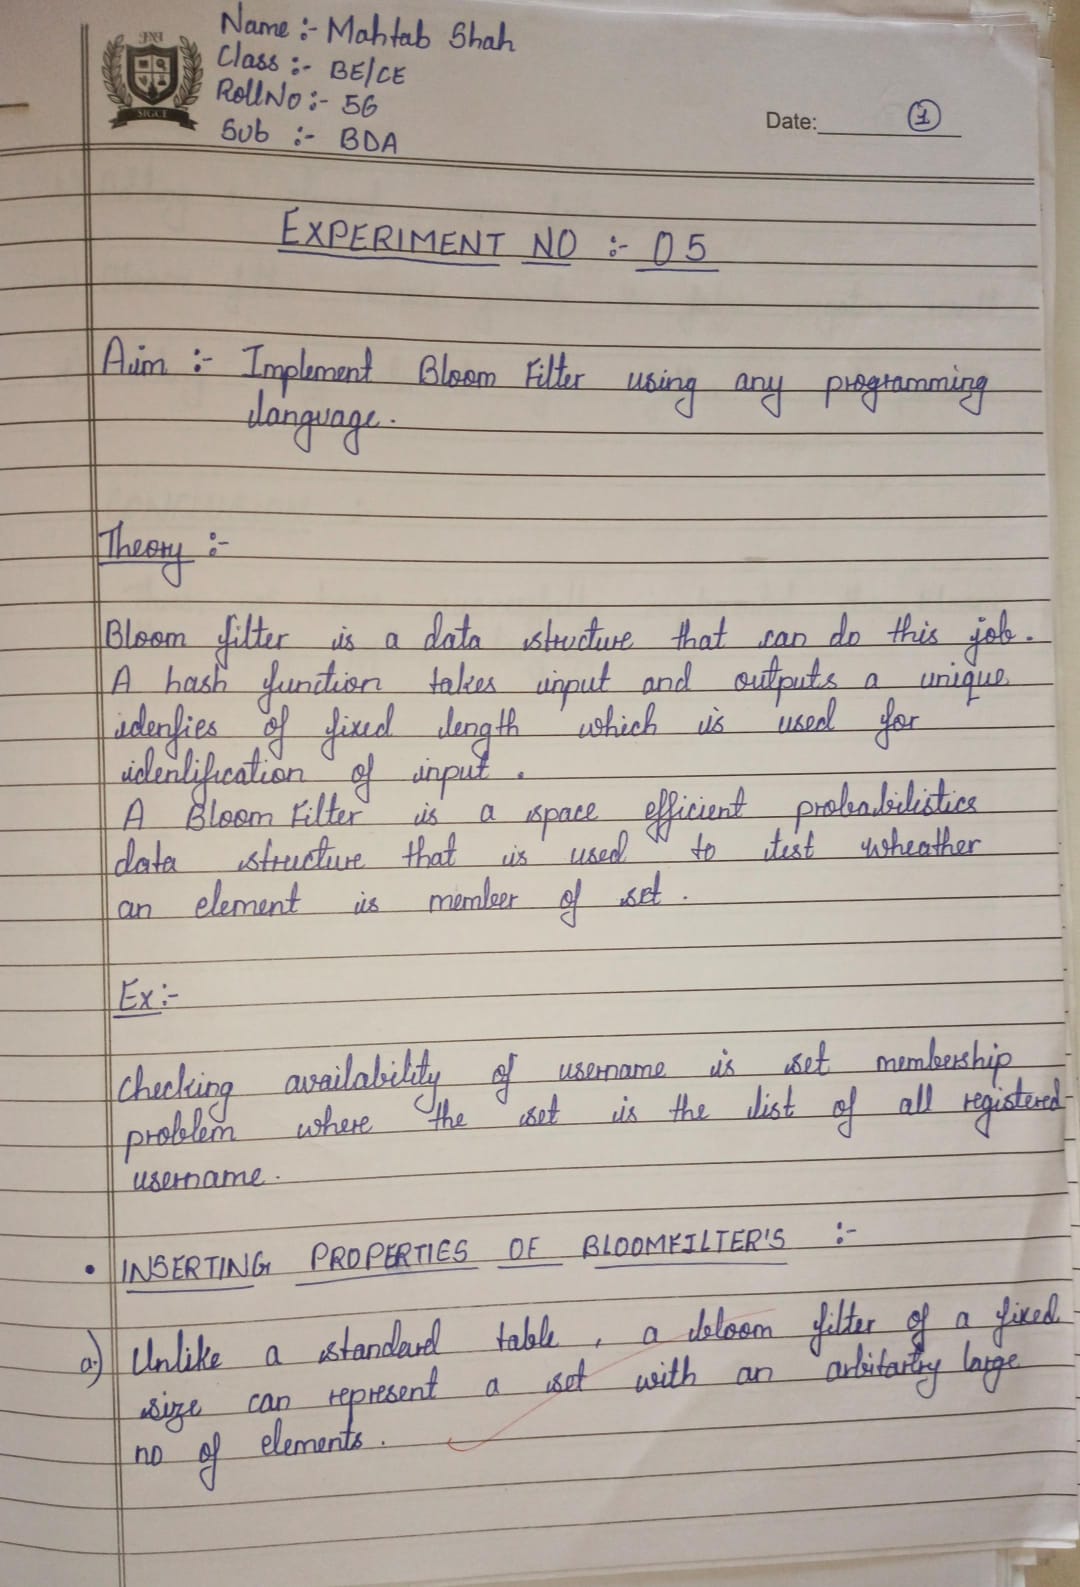 Name :- Mahtab Shah
Class :- BE/CE
RollNo :- 56
Sub :- BDA
SIGCE
Date: 1
EXPERIMENT NO :- 05
Aim :- Implement Bloom Filter using any programming
language.
Theory :-
Bloom filter is a data structure that can do this job.
A hash function takes input and outputs a unique
idenfies of fixed length which is used for
idenlification of input.
A Bloom Filter is a space efficient probabilistics
data structure that is used to test wheather
an element is member of set.
Ex:-
Checking availability of username is set membership
problem where the set is the list of all registered
username.
• INSERTING PROPERTIES OF BLOOMFILTER'S :-
a) Unlike a standard table, a bloom filter of a fixed
size can represent a set with an arbitartry large
no of elements.